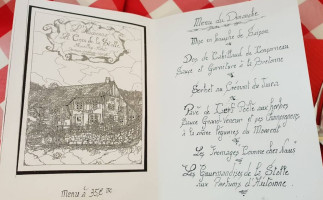 Menu à 35€
Menu du Dimanche
Mise en bouche de Saison
Dos de Cabillaud du
Sauce et Garniture à la Bretonne
Sorbet au du Jura
Pavé de Cerf Poêlé aux herbes
Sauce Grand Veneur et ses Champignons
à la crème Légumes du Moment
Les Fromages Comme chez Nous
Les Gourmandises de La
aux Parfums d'Automne